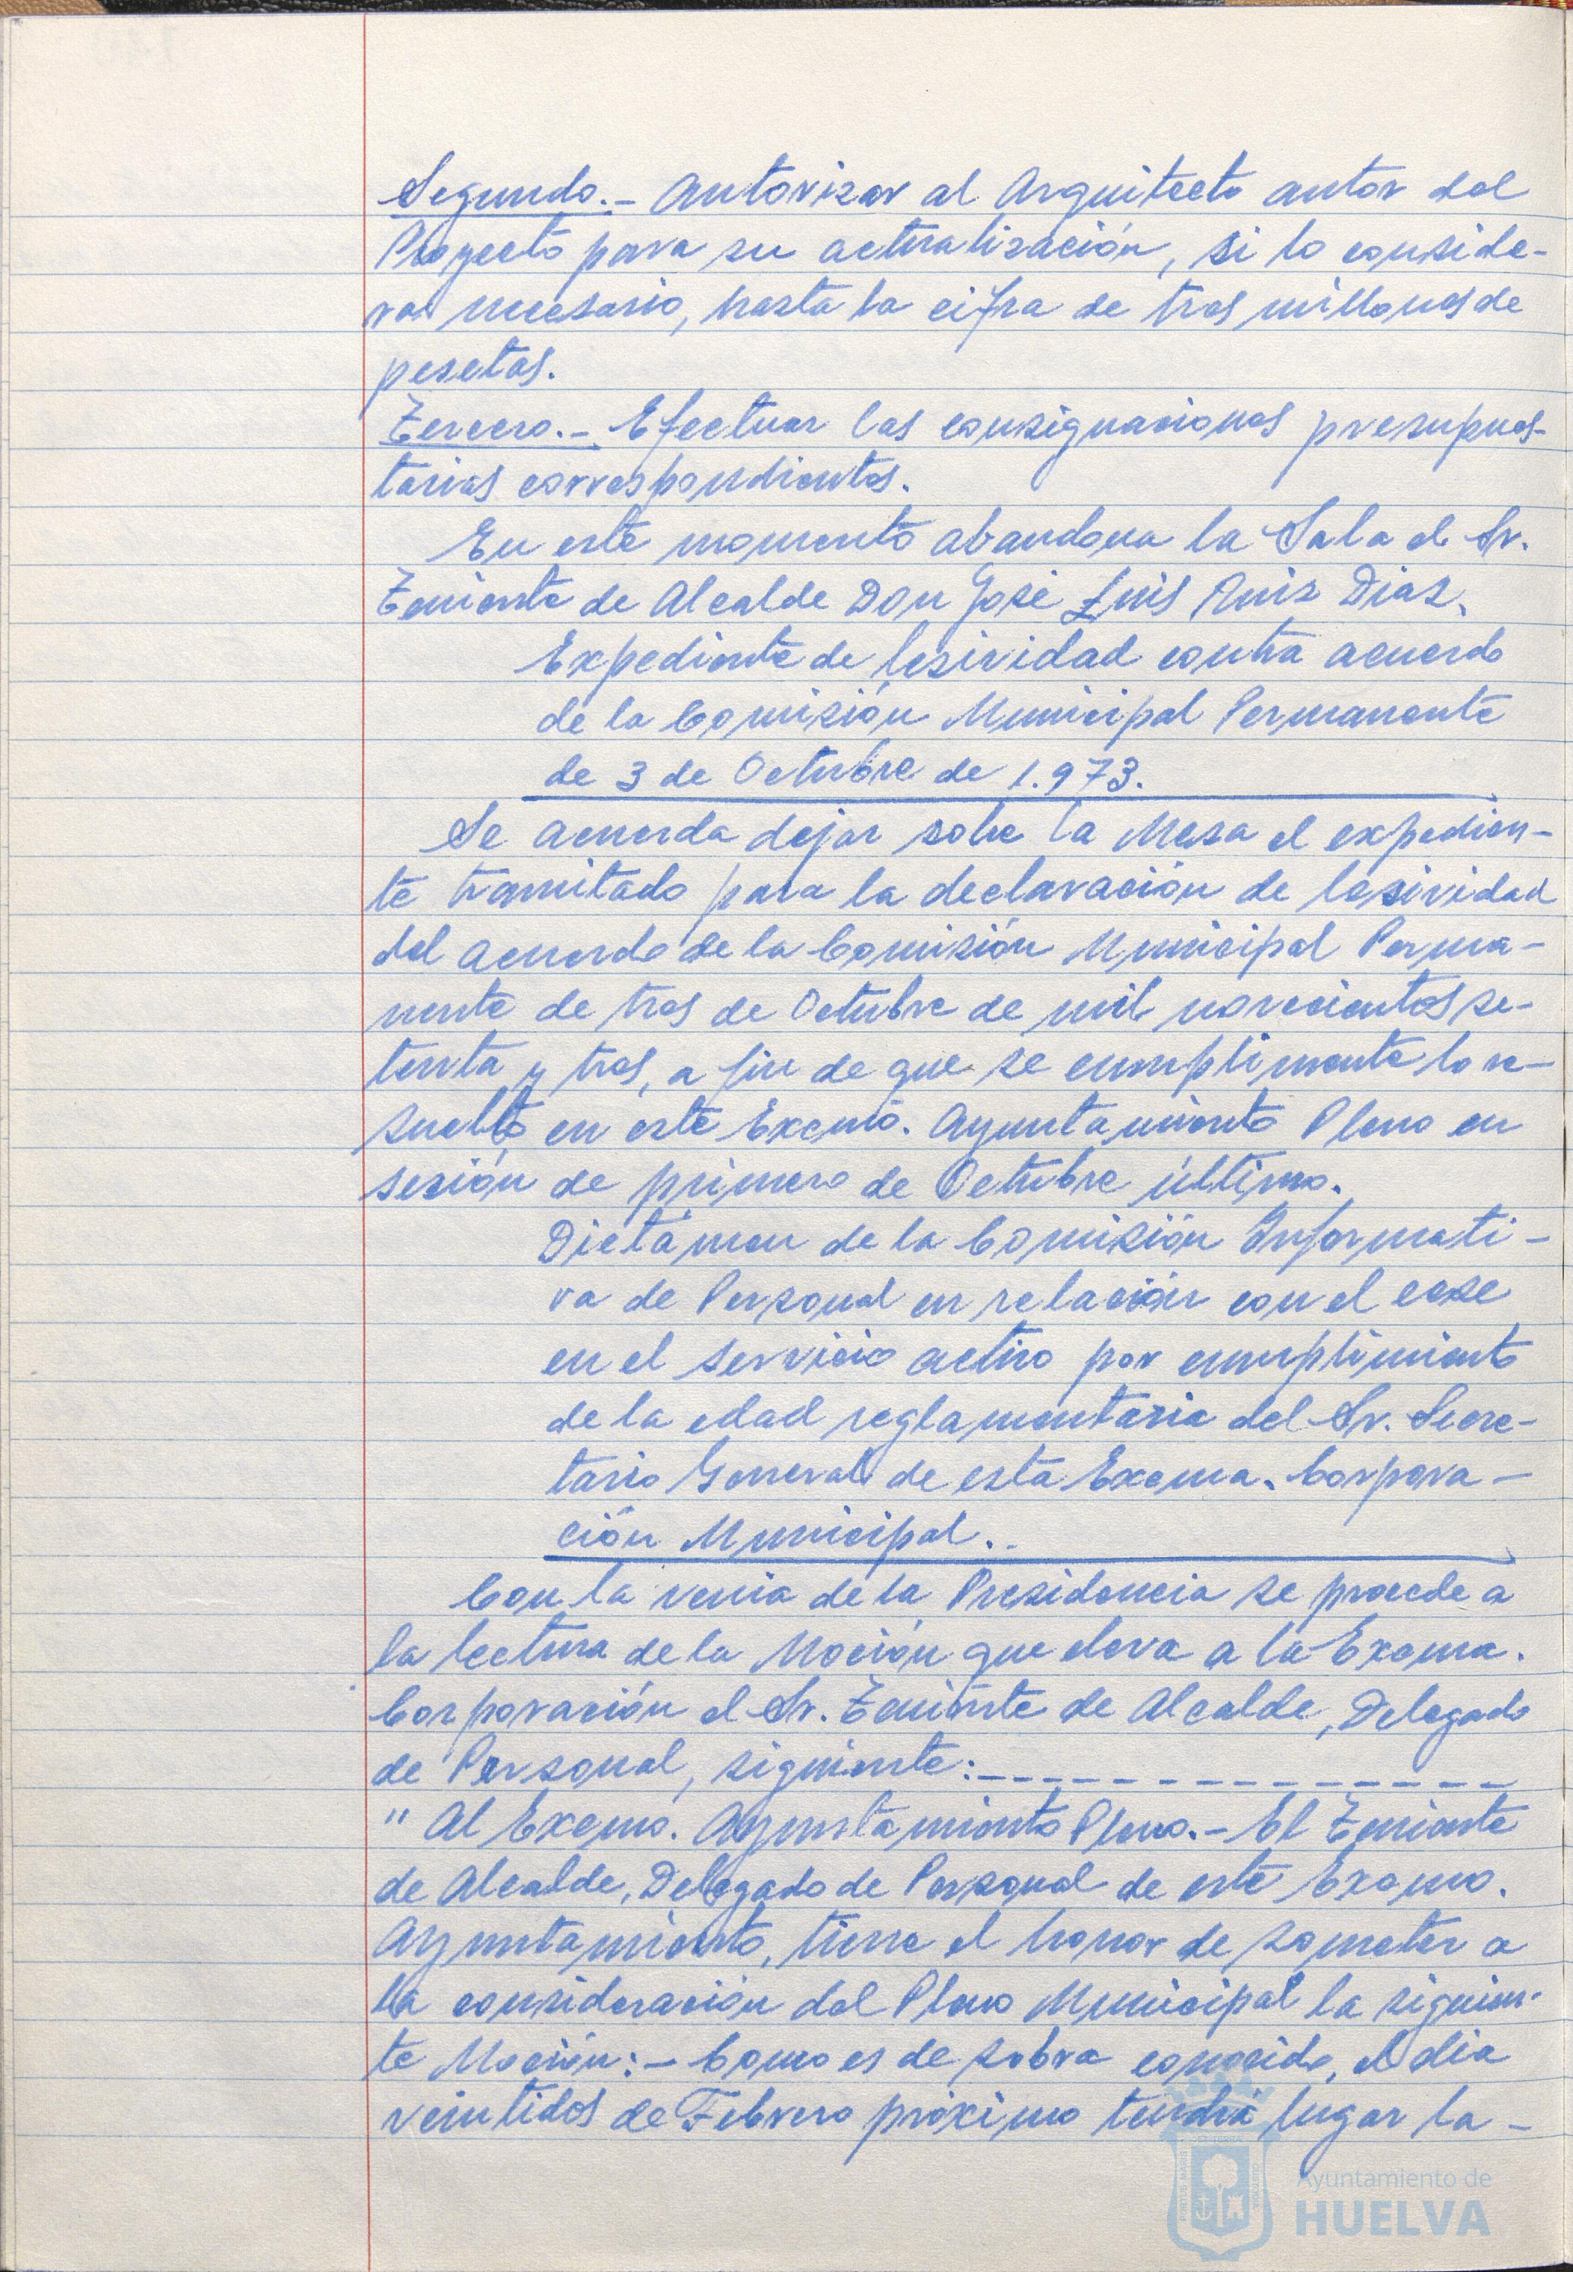 Segundo.- Autorizar al Arquitecto autor del
Proyecto para su actualización, si lo conside-
ra necesario, hasta la cifra de tres millones de
pesetas.
Tercero.- Efectuar las consignaciones presupues-
tarias correspondientes.
En este momento abandona la Sala el Sr.
Teniente de Alcalde Don José Luis Ruiz Diaz.
Expediente de lesividad contra acuerdo
de la Comisión Municipal Permanente
de 3 de Octubre de 1.973.
Se acuerda dejar sobre la Mesa el expedien-
te tramitado para la declaración de lesividad
del acuerdo de la Comisión Municipal Perma-
nente de tres de Octubre de mil novecientos se-
tenta y tres, a fin de que se cumplimente lo re-
suelto en este Excmo. Ayuntamiento Pleno en
sesión de primero de Octubre último.
Dictámen de la Comisión Informati-
va de Personal en relación con el cese
en el servicio activo por cumplimiento
de la edad reglamentaria del Sr. Secre-
tario General de esta Excma. Corpora-
ción Municipal..
Con la venia de la Presidencia se procede a
la lectura de la Moción que eleva a la Excma.
Corporación el Sr. Teniente de Alcalde, Delegado
de Personal, siguiente:- - - - - - - - - - - - - - -
" Al Excmo. Ayuntamiento Pleno.- El Teniente
de Alcalde, Delegado de Personal de este Excmo.
Ayuntamiento, tiene el honor de someter a
la consideración del Pleno Municipal la siguien-
te Moción:- Como es de sobra conocido, el dia
veintidos de Febrero próximo tendrá lugar la-
Ayuntamiento de
HUELVA